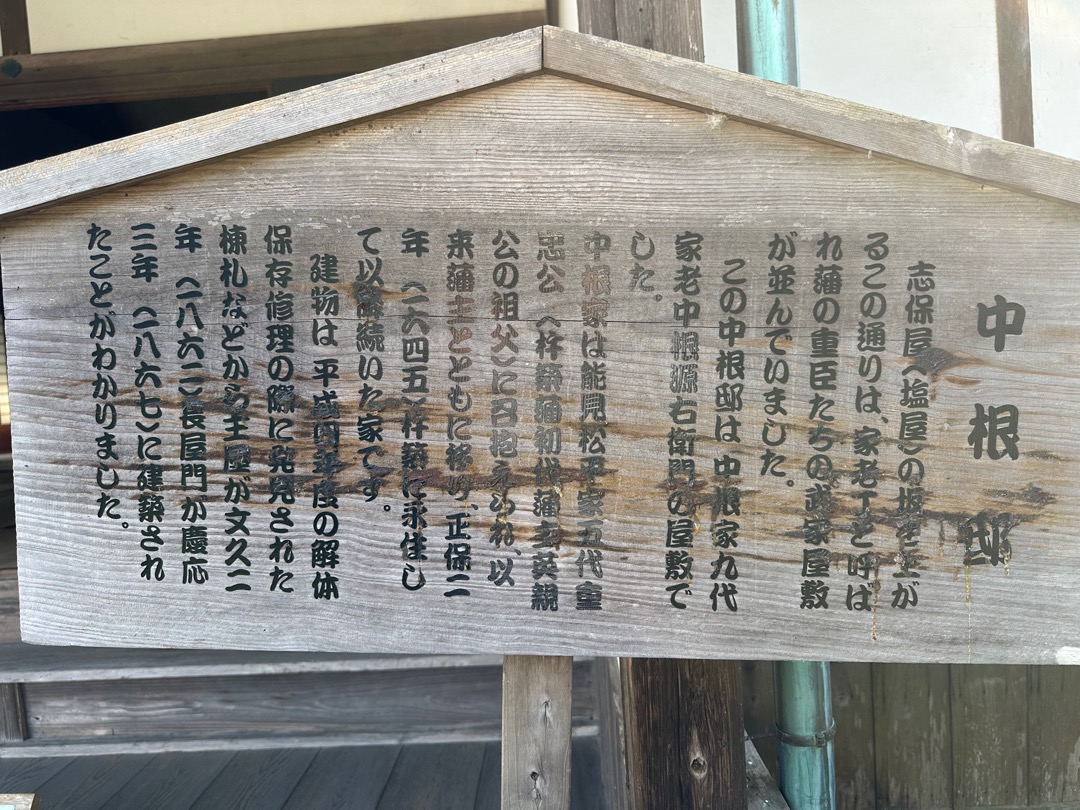 中根邸
志保屋（塩屋）の坂を上が
るこの通りは、家老丁と呼ば
れ藩の重臣たちの武家屋敷
が並んでいました。
この中根邸は中根家九代
家老中根源右衛門の屋敷で
した。
中根家は能見松平家五代重
忠公（杵築藩初代藩主英親
公の祖父）に召抱えられ、以
来藩主とともに移り、正保二
年（一六四五）杵築に永住し
て以降続いた家です。
建物は平成四年度の解体
保存修理の際に発見された
棟札などから主屋が文久二
年（一八六二）長屋門が慶応
三年（一八六七）に建築され
たことがわかりました。